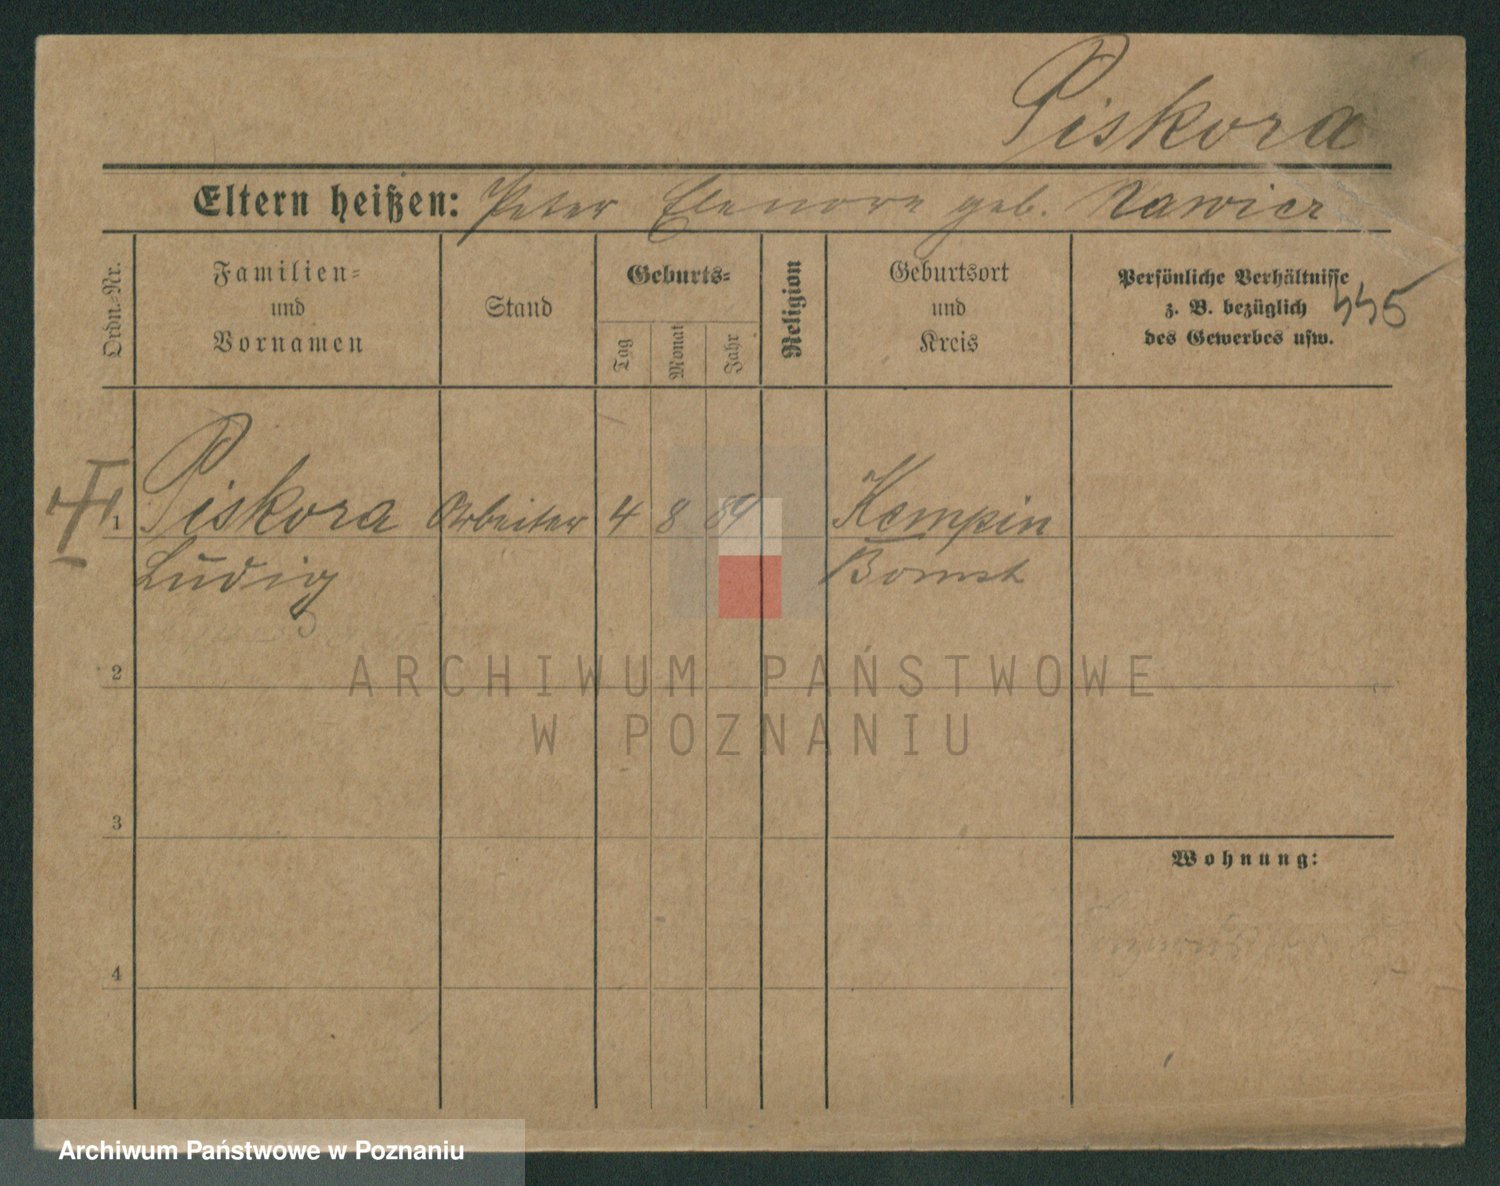 Piskora
Eltern heißen: Peter Elenore geb. Nawier
Ordn.-Nr.
Familien-
und
Vornamen
Stand
Geburts-
Tag
Monat
Jahr
Religion
Geburtsort
und
Kreis
Persönliche Verhältnisse
z. B. bezüglich
des Gewerbes usw.
1 Piskora Arbeiter 4 8 84 Kempin
Ludig Bomst
2
ARCHIWUM PAŃSTWOWE
W POZNANIU
3
Wohnung:
4
Archiwum Państwowe w Poznaniu